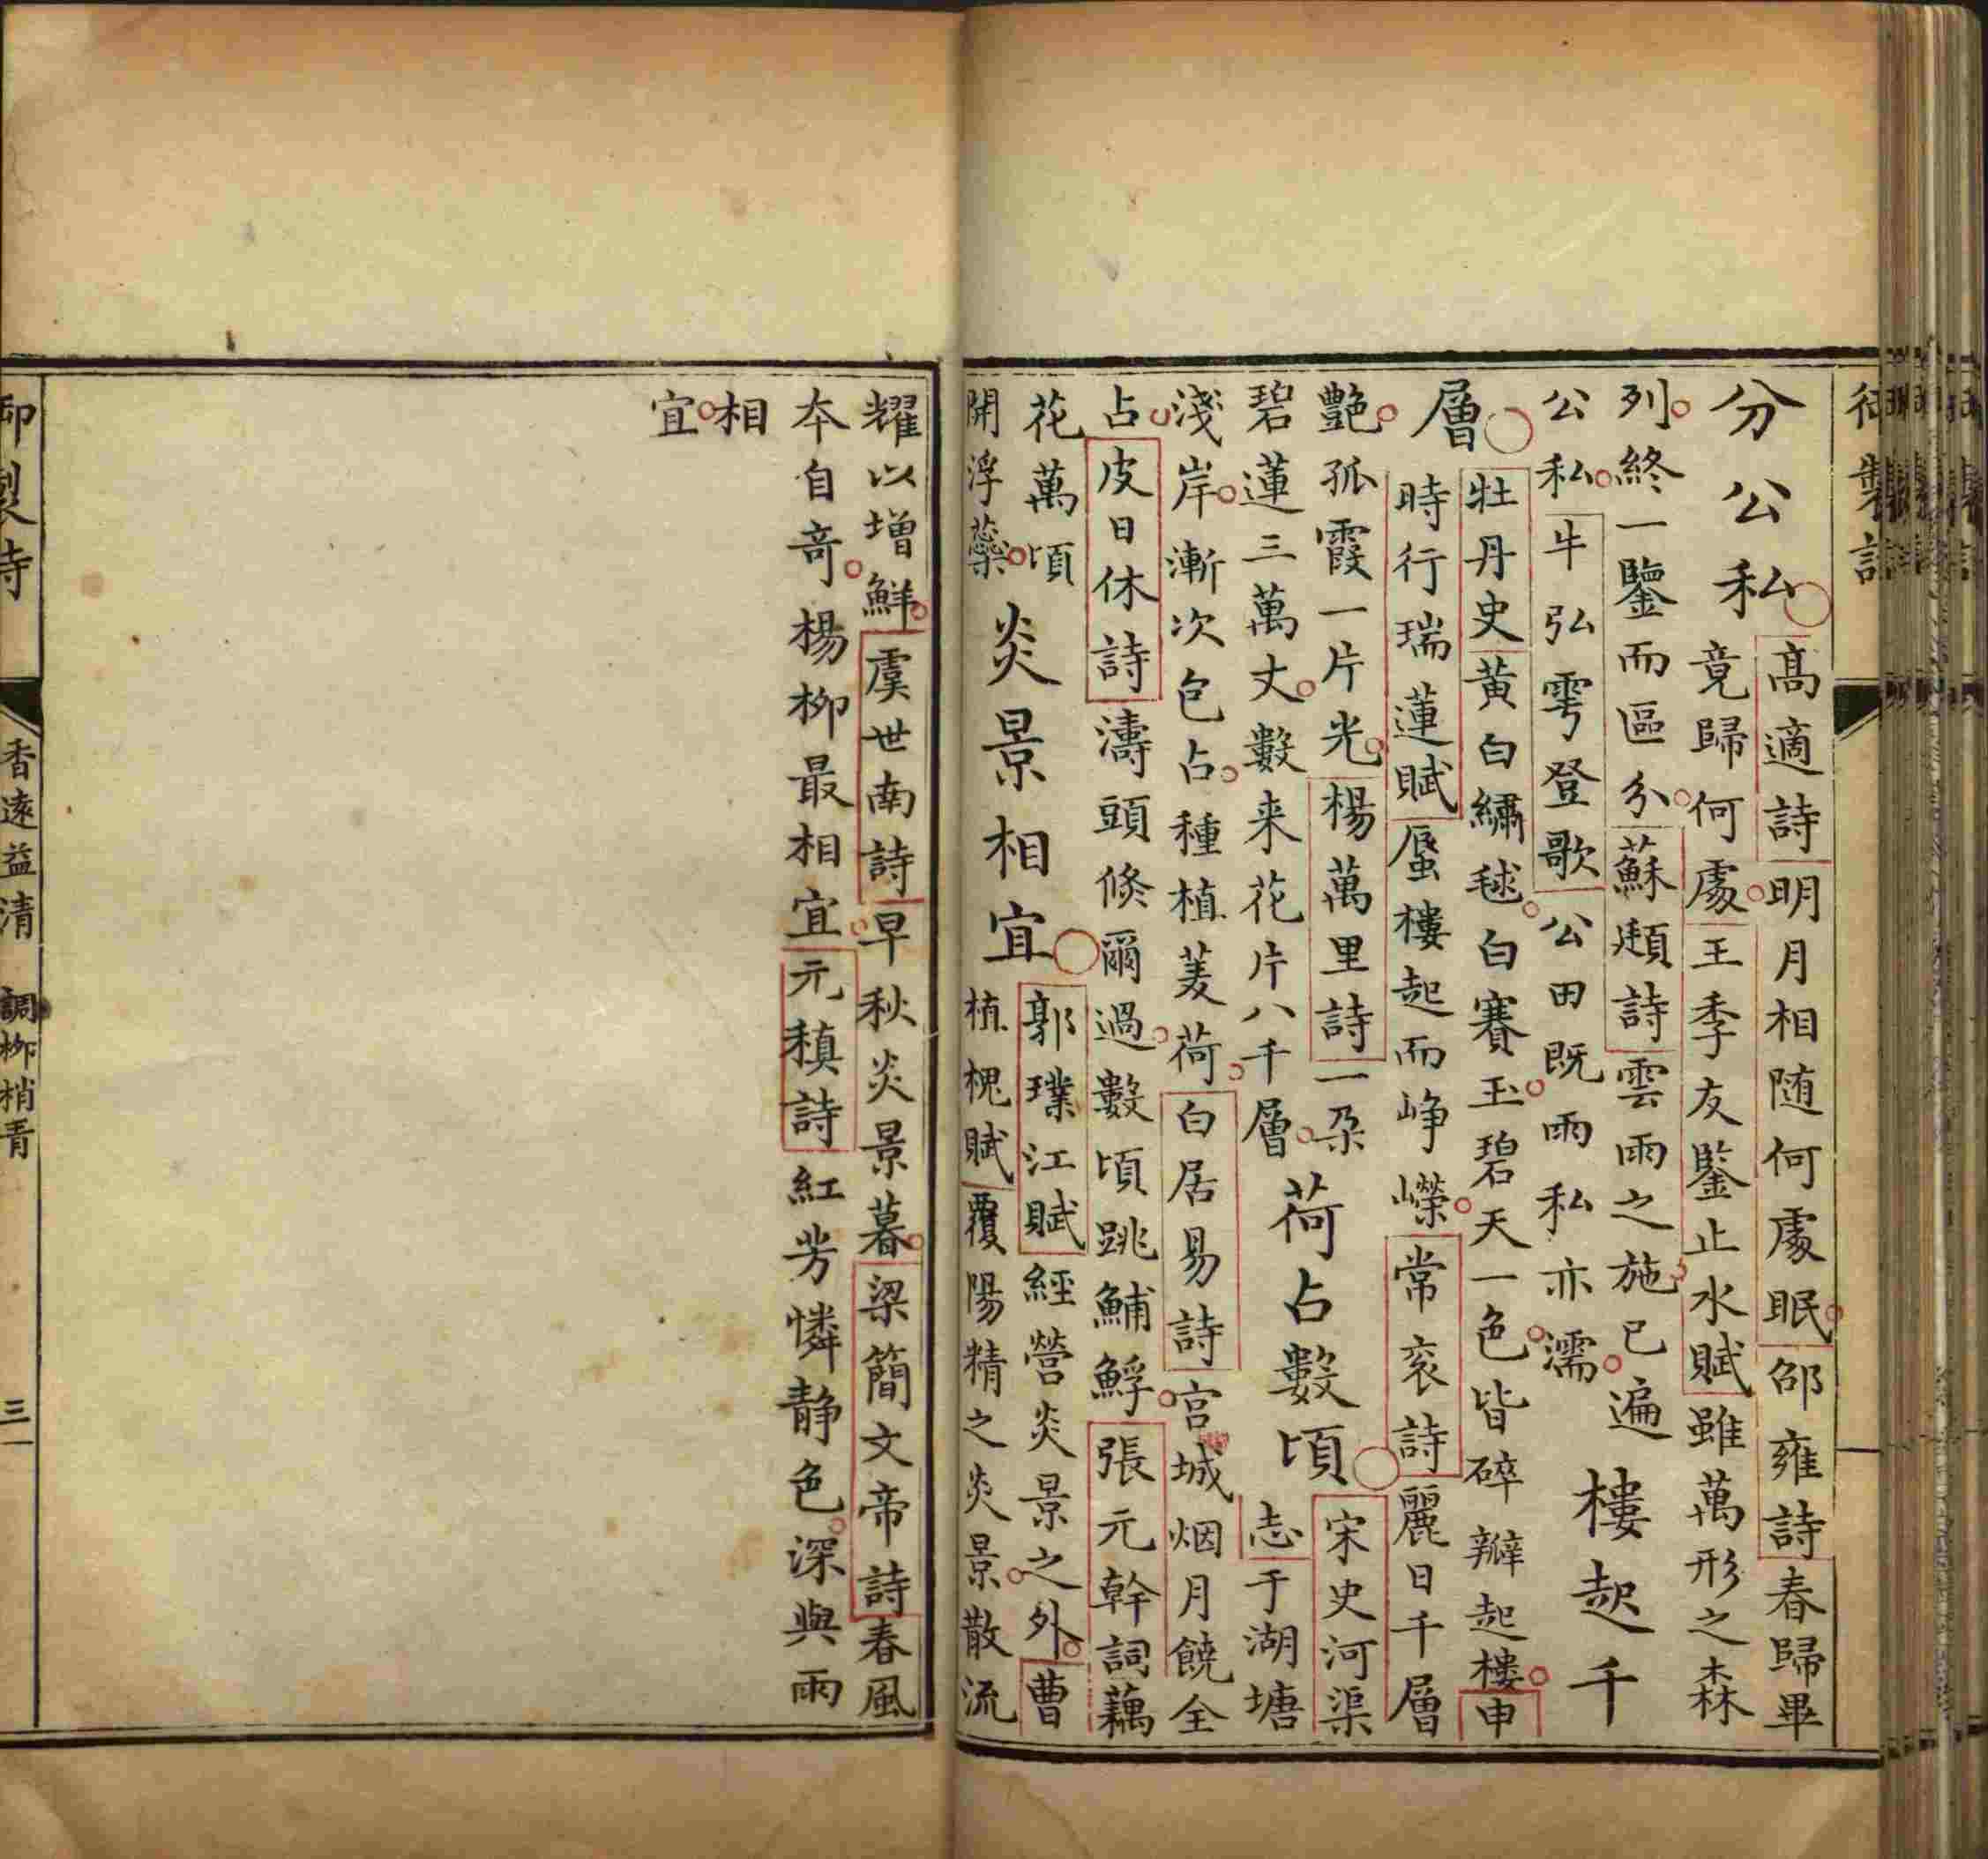 御製詩
分公私
高適詩明月相随何處眠邵雍詩春歸畢
竟歸何處王季友鑒止水賦雖萬形之森
列終一鑒而區分蘇頲詩雲雨之施已遍
公私牛弘雩登歌公田既雨私亦濡
樓起千
層
牡丹史黄白繡毬白賽玉碧天一色皆碎瓣起樓申
時行瑞蓮賦蜃樓起而崢嶸常衮詩麗日千層
艷孤霞一片光楊萬里詩一朶
碧蓮三萬丈數来花片八千層
荷占數頃
宋史河渠
志于湖塘
淺岸漸次包占種植菱荷白居易詩宮城烟月饒全
占皮日休詩濤頭倐爾過數頃跳鯆䱐張元幹詞藕
花萬頃
開浮蘂
炎景相宜
郭璞江賦經營炎景之外曹
植槐賦覆陽精之炎景散流
耀以增鮮虞世南詩早秋炎景暮梁簡文帝詩春風
本自奇楊柳最相宜元稹詩紅芳憐静色深與雨
相
宜
御製詩
香遠益清 調柳梢青
三一